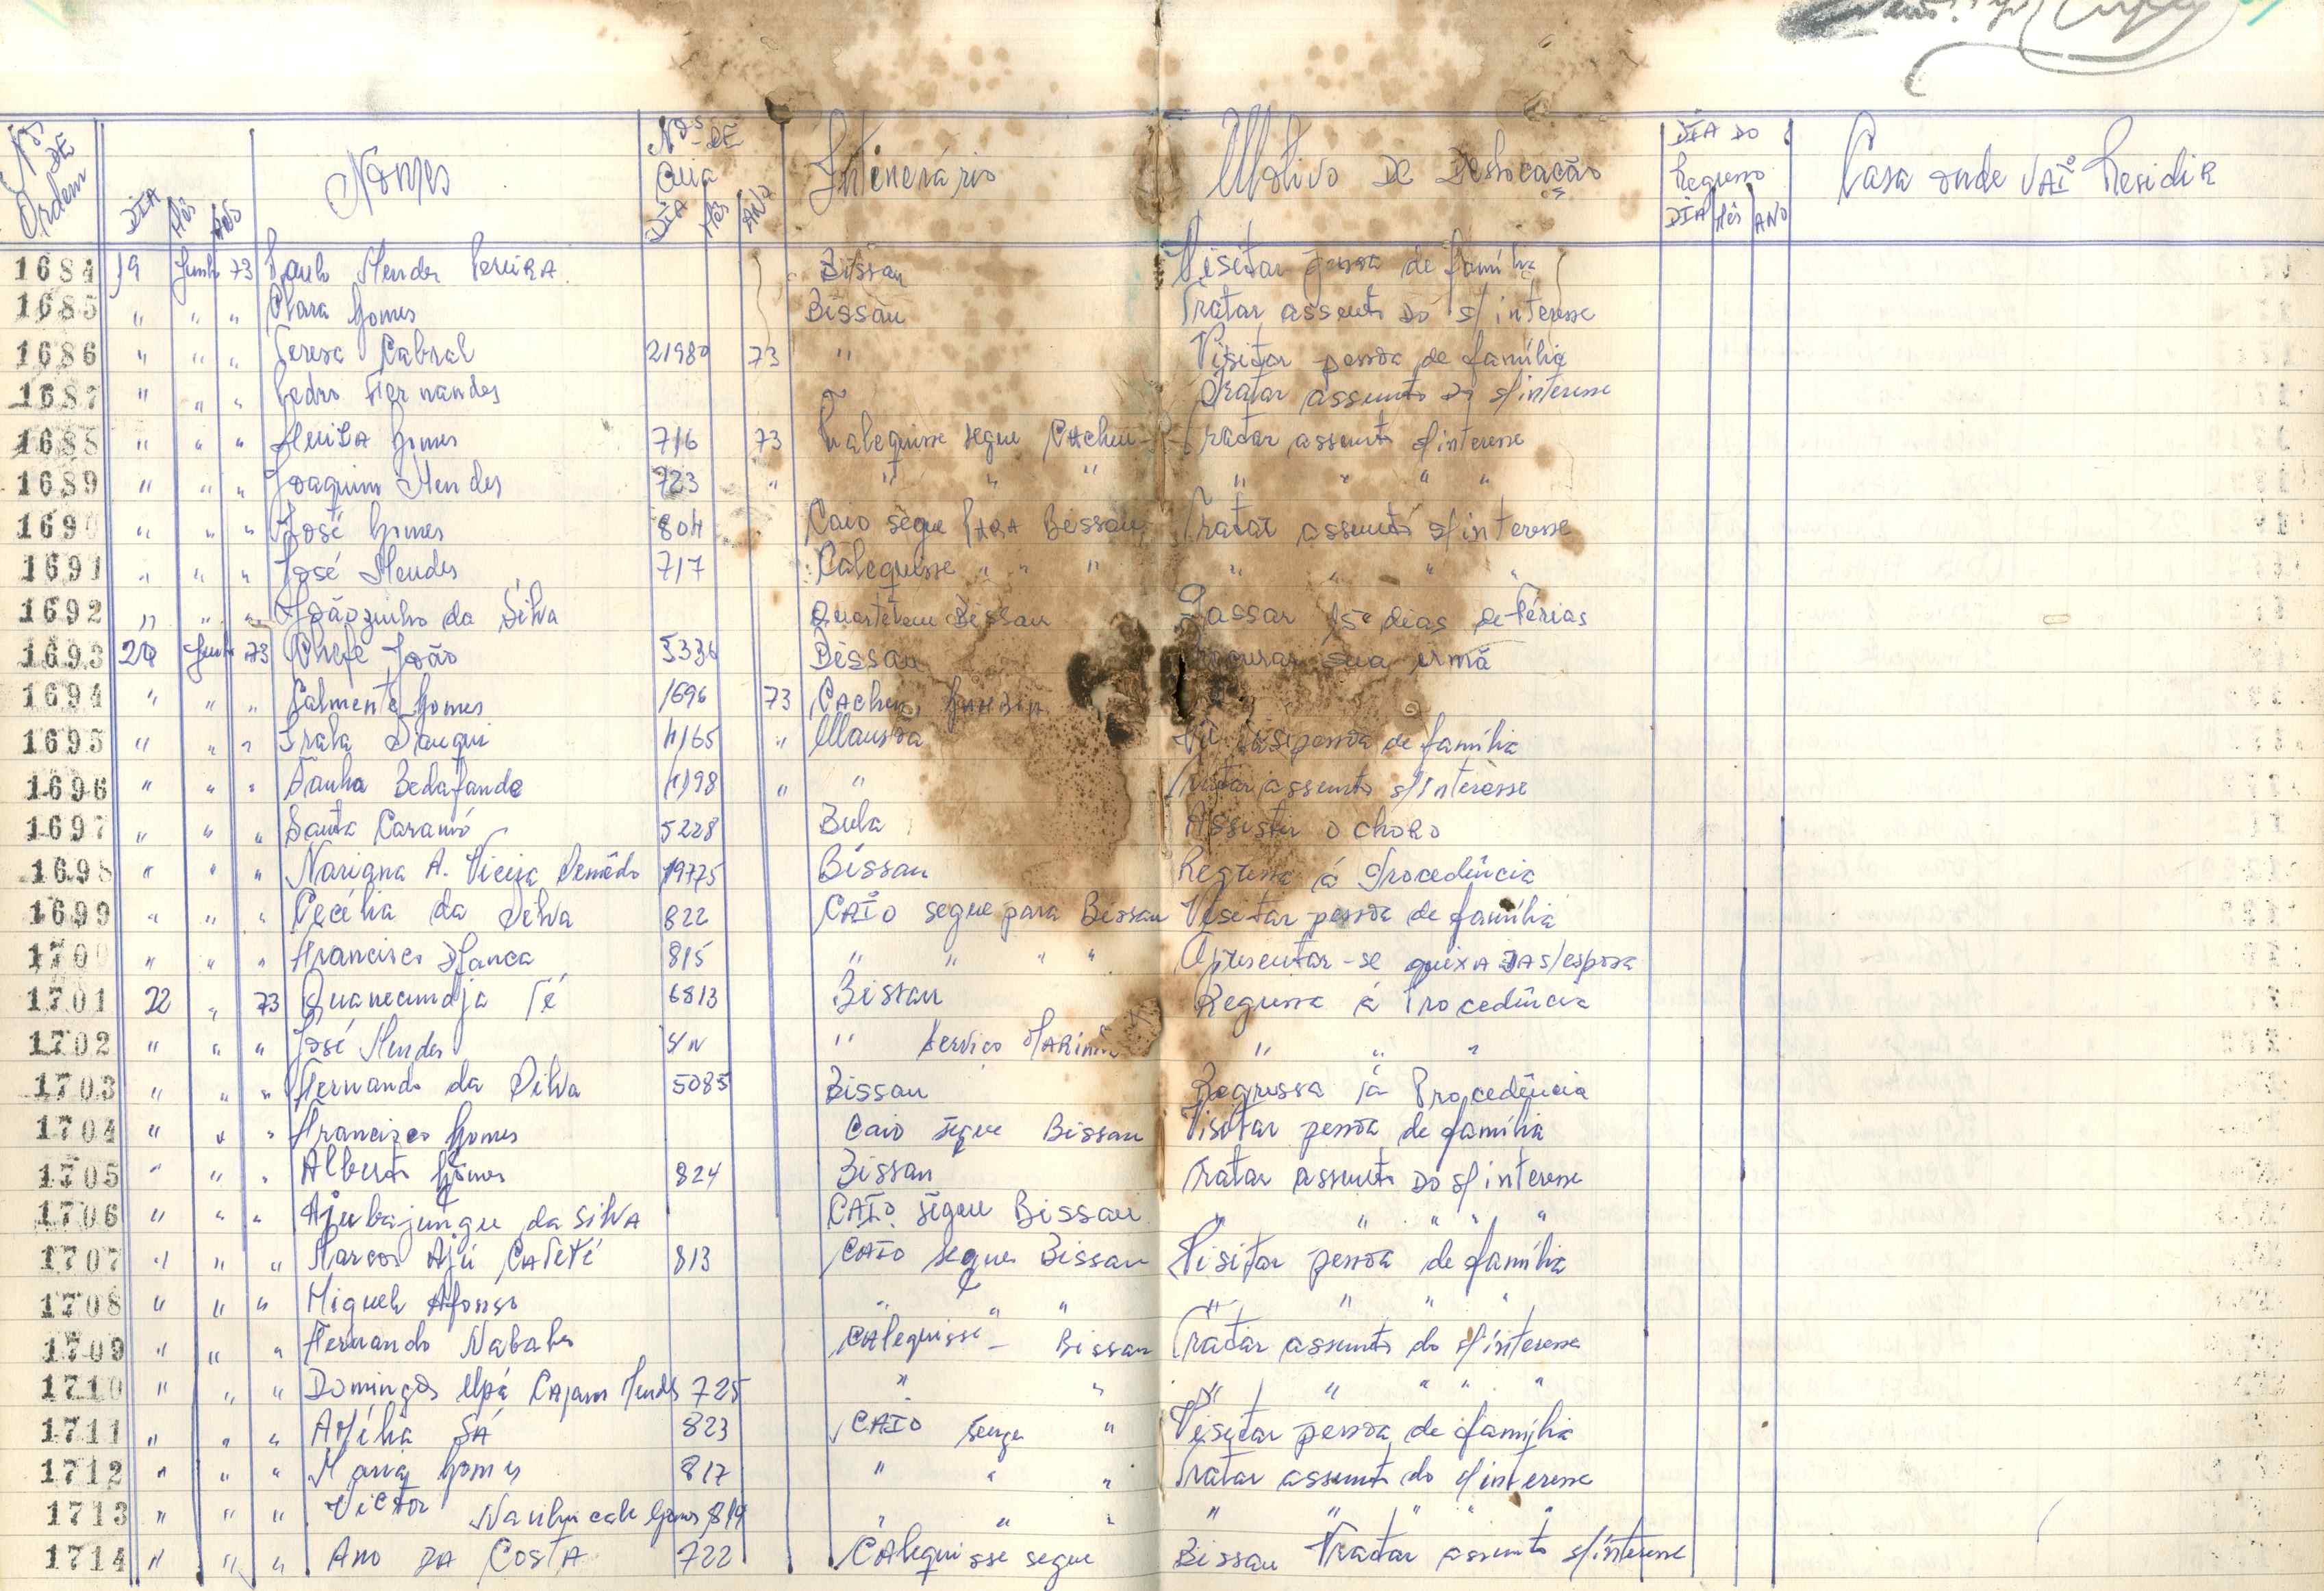 Nºs DE Ordem DIA Mês Ano Nomes Nºs DE Guia DIA Mês ANO Intinerário Motivo DE Deslocação DIA DO Regresso DIA Mês ANO Casa onde VAI Residir
1684 19 Junho 73 Paulo Mendes Pereira Bissau Visitar pessoa de família
1685 " " " Clara Gomes Bissau Tratar assunto do s/ interesse
1686 " " " Teresa Cabral 21980 73 " Visitar pessoa de família
1687 " " " Pedro Fernandes " Tratar assunto do s/ interesse
1688 " " " Gomes 716 73 Calequisse segue Cacheu Tratar assunto s/ interesse
1689 " " " Joaquim Mendes 723 " " " " " " " "
1690 " " " José Gomes 804 Caio segue PARA Bissau Tratar assunto s/ interesse
1691 " " " José Mendes 717 Calequisse " " " " " " "
1692 " " " Joãozinho da Silva Bissau Passar 15 dias de Férias
1693 20 Junho 73 Chefe João 5336 Bissau Procurar sua irmã
1694 " " " Gomes 1696 73 Cacheu
1695 " " " 4165 " Mansoa pessoa de família
1696 " " " Bedafande 4198 " " Tratar assunto s/ interesse
1697 " " " Santa Caramó 5228 Bula Assistir o choro
1698 " " " A. Vieira 19775 Bissau Regressa á Procedência
1699 " " " Cecília da Silva 822 CAIO segue para Bissau Visitar pessoa de família
1700 " " " Francisco 815 " " " " Apresentar-se queixa da s/ esposa
1701 22 " 73 Quanecundja Té 6813 Bissau Regressa á Procedência
1702 " " " José Mendes S/N " Serviço Marinha " " "
1703 " " " Fernando da Silva 5085 Bissau Regressa á Procedência
1704 " " " Francisco Gomes Caio segue Bissau Visitar pessoa de família
1705 " " " Alberto Gomes 824 Bissau Tratar assunto DO s/ interesse
1706 " " " Ajubajungue da Silva CAIO segue Bissau " " " " "
1707 " " " Marcos Ajú CAFETÉ 813 CAIO segue Bissau Visitar pessoa de família
1708 " " " Miguel Afonso " " " " " " "
1709 " " " Fernando Nabalo Calequisse - Bissau Tratar assunto do s/ interesse
1710 " " " Domingos Upá Mendes 725 " " " " " " "
1711 " " " Amélia SÁ 823 CAIO segue " Visitar pessoa de família
1712 " " " Maria Gomes 817 " " " Tratar assunto do s/ interesse
1713 " " " Victor Gomes 814 " " " " " " " "
1714 " " " Ano DA COSTA 722 Calequisse segue Bissau Tratar assunto s/ interesse